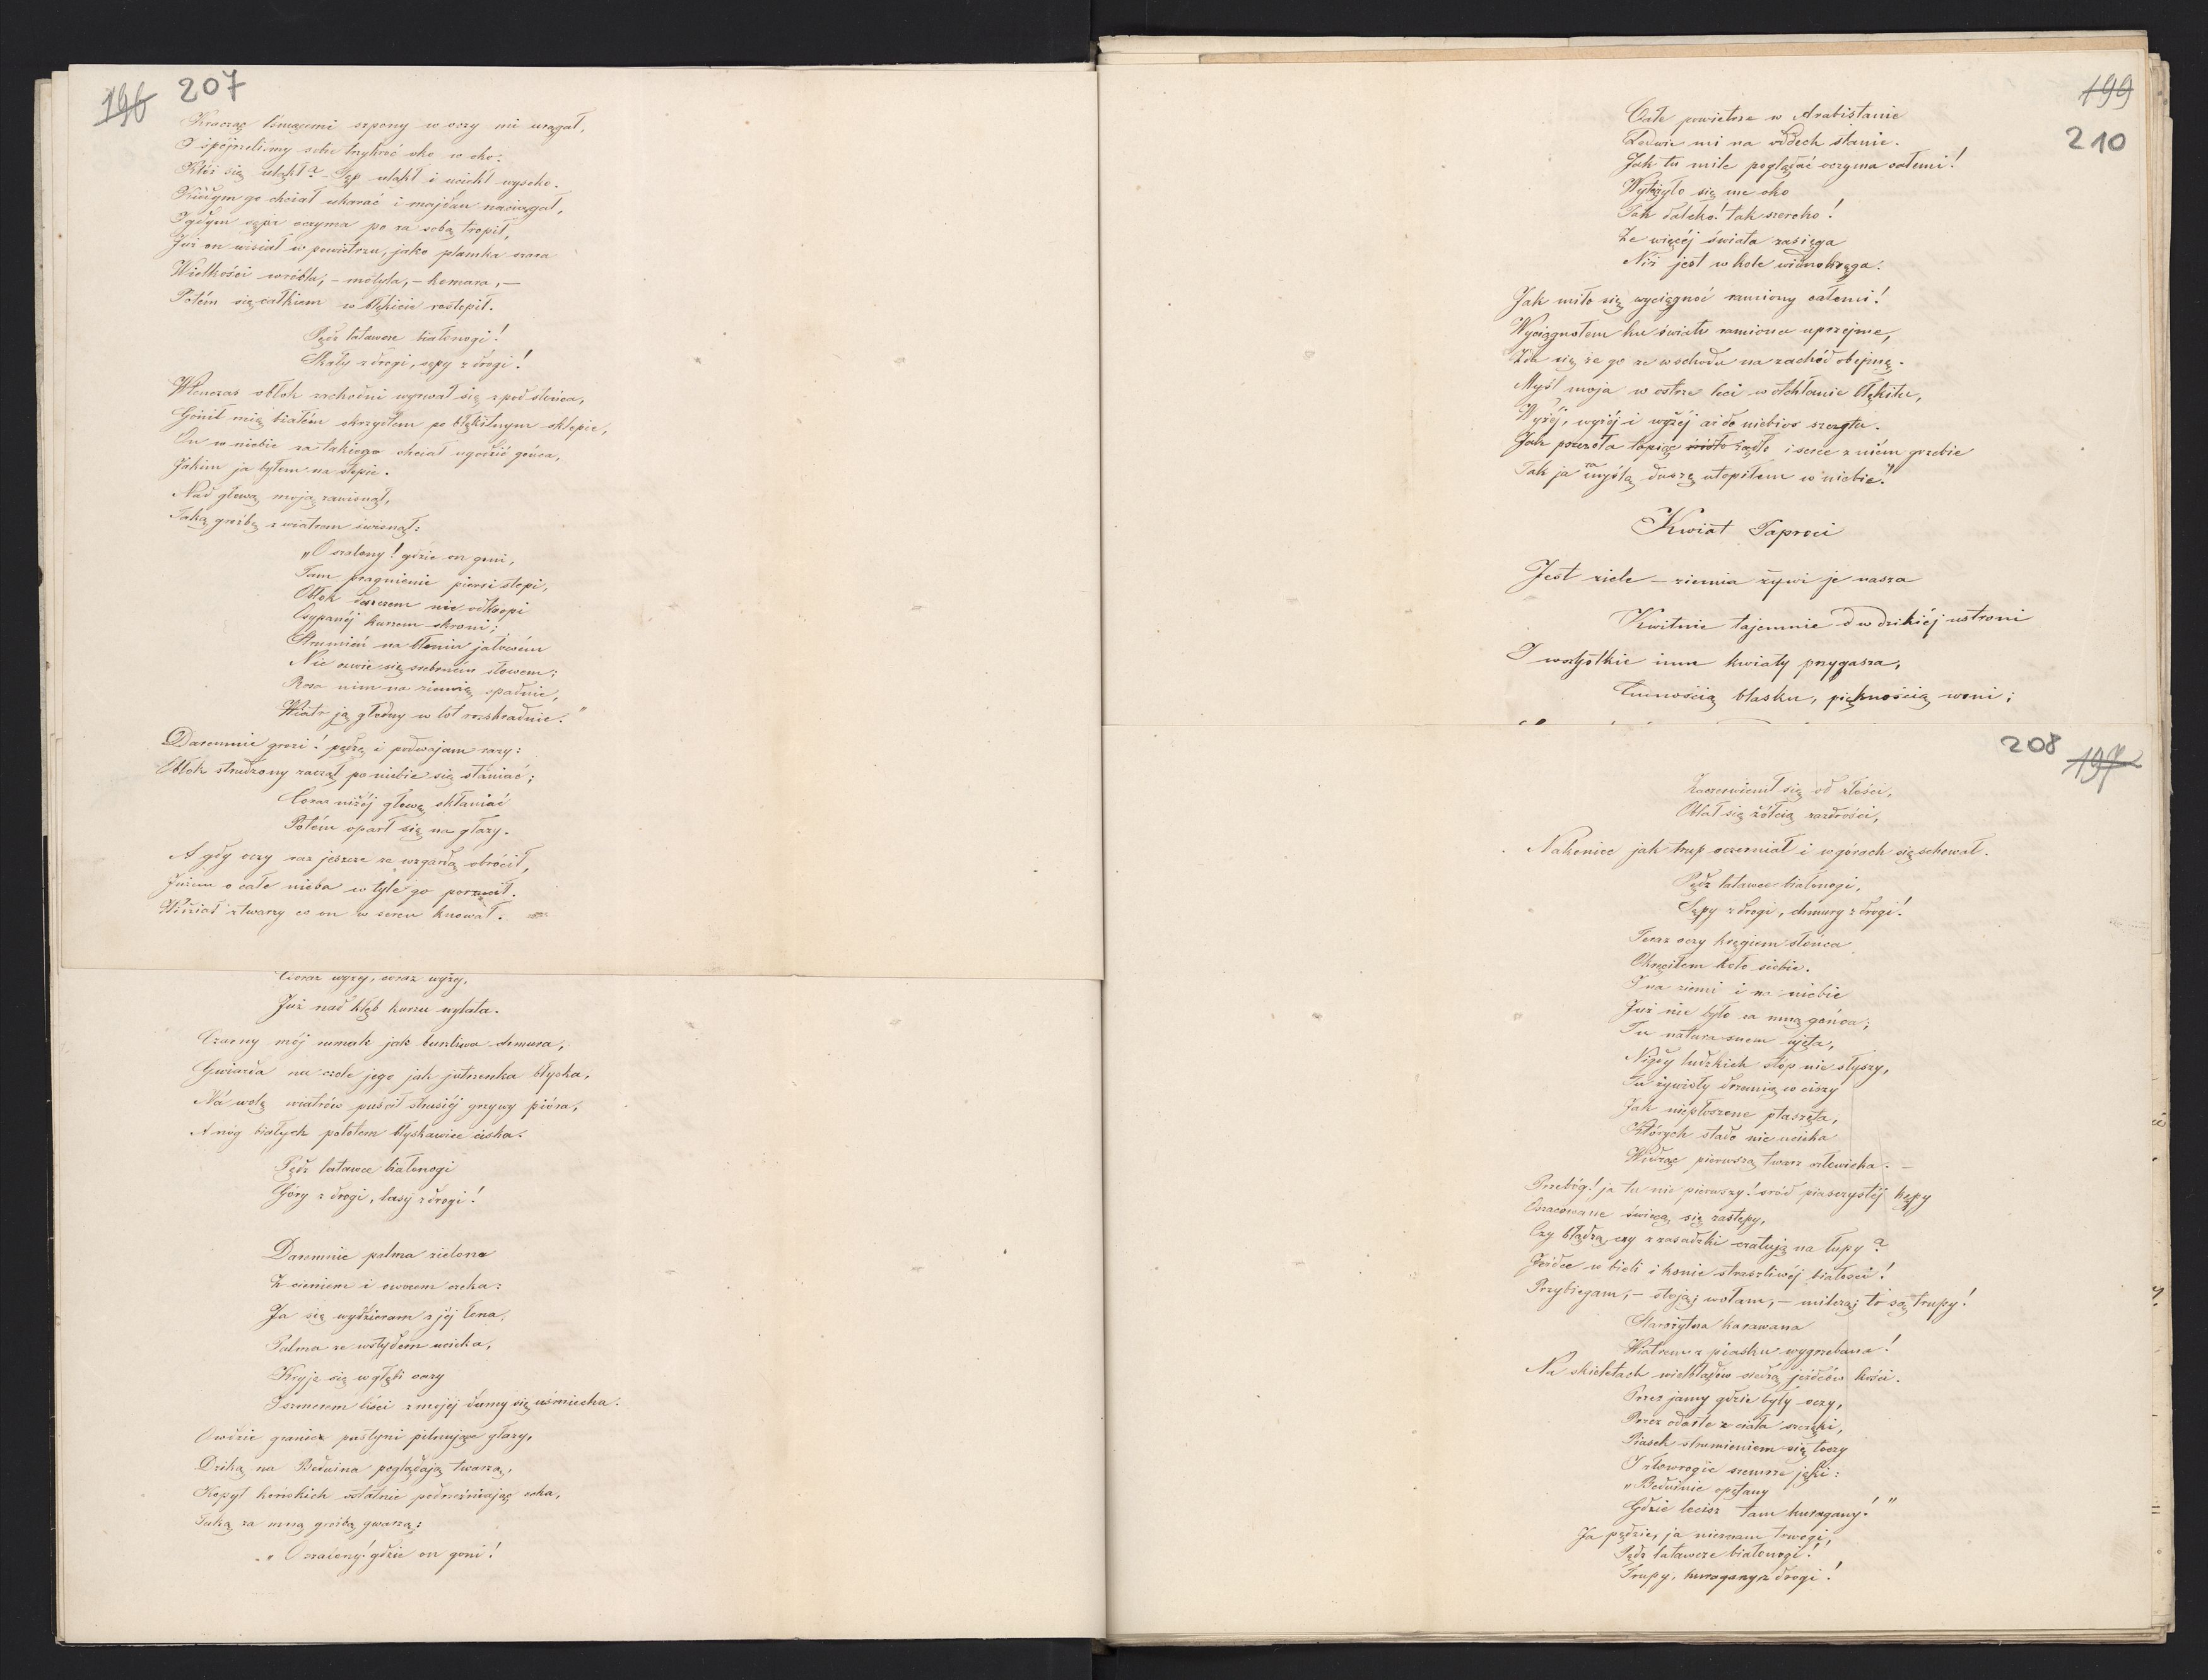 196 207
Kracząc lśniącemi szpony w oczy mi urągał,
I spójrzeliśmy sobie trzykroć oko w oko.
Któż się uląkł? – Sęp uląkł i uciekł wysoko.
Kiedym go chciał ukarać i majdan naciągał,
I gdym sępa oczyma po za sobą tropił,
Już on wisiał w powietrzu, jako plamka szara
Wielkości wróbla, – motyla, – komara, –
Potém się całkiem w błękicie roztopił.
Pędź latawcze białonogi!
Skały z drogi, sępy z drogi!
Wtenczas obłok zachodni wyrwał się z pod słońca,
Gonił mię białém skrzydłem po błękitnym sklepie,
On w niebie za takiego chciał ugodzić gońca,
Jakim ja byłem na stepie.
Nad głową moją zawisnął,
Taką groźbę z wiatrem świsnął:
„O szalony! gdzie on goni,
Tam pragnienie piersi stopi,
Obłok deszczem nie odkropi
Osypanéj kurzem skroni;
Strumień na błoniu jałowém
Nie ozwie się srebrném słowem;
Rosa nim na ziemię spadnie,
Wiatr ją głodny w lot rozkradnie."
Daremnie grozi! pędzę i podwajam razy:
Obłok strudzony zaczął po niebie się słaniać;
Coraz niżéj głowę skłaniać
Potém oparł się na głazy.
A gdy oczy raz jeszcze ze wzgardą obróciłem,
Jużem o całe nieba w tyle go porzucił.
Widział z twarzy co on w sercu knował.
Coraz wyżej, coraz wyżej,
Już nad kłęb kurzu wylata.
Czarny mój rumak jak burzliwa chmura,
Gwiazda na czole jego jak jutrzenka błyska,
Na wolę wiatrów puścił strusiéj grzywy pióra,
A nóg białych polotem błyskawice ciska.
Pędź latawce białonogi
Góry z drogi, lasy z drogi!
Daremnie palma zielona
Z cieniem i owocem czeka:
Ja się wydzieram z jéj łona,
Palma ze wstydem ucieka,
Kryje się w głębi oazy
I szmerem liści z mojéj dumy się uśmiecha.
Owdzie granicę pustyni pilnujące głazy,
Dziką na Beduina poglądają twarzą,
Kopyt końskich ostatnie podrzeźniając echa,
Taką za mną groźbą gwarzą:
„O szalony! gdzie on goni!
199
210
Całe powietrze w Arabistanie
Ledwie mi na oddech stanie.
Jak tu mile poglądać oczyma całemi!
Wytężyło się me oko
Tak daleko! tak szeroko!
Że więcéj świata zasięga
Niż jest w kole widnokręga.
Jak miło się wyciągnąć ramiony całemi!
Wyciągnąłem ku światu ramiona uprzejme,
Zda się że go ze wschodu na zachód obejmę.
Myśl moja w ostrze leci w otchłanie błękitu,
Wyżéj, wyżéj i wyżéj aż do niebios szczytu.
Jak pszczoła topiąc żądło i serce z niém grzebie
Tak ja za myślą duszę utopiłem w niebie!
Kwiat Paproci
Jest ziele – ziemia żywi je nasza
Kwitnie tajemnie w dzikiéj ustroni
I wszystkie inne kwiaty przygasza,
Cudnością blasku, pięknością woni;
208 197
Zaczerwienił się od złości,
Oblał się żółcią zazdrości,
Nakoniec jak trup sczerniał i w górach się schował.
Pędź latawce białonogi,
Sępy z drogi, chmury z drogi!
Teraz oczy kręgiem słońca
Okręciłem koło siebie.
I na ziemi i na niebie
Już nie było za mną gońca;
Tu natura snem ujęta,
Nigdy ludzkich stóp nie słyszy,
Tu żywioły drzemią w ciszy
Jak niepłoszone ptaszęta,
Których stado nie ucieka
Widząc pierwszą twarz człowieka. –
Przebóg! ja tu nie pierwszy! śród piasczystéj kępy
Oszacowane świecą się zastępy,
Czy błądzą czy z zasadzki czatują na łupy?
Jeźdce w bieli i konie straszliwéj białości!
Przybiegam, – stoją; wołam, – milczą; to są trupy!
Starożytna karawana
Wiatrem z piasku wygrzebana!
Na skieletach wielbłądów siedzą jeźdźców kości.
Przez jamy gdzie były oczy,
Przez odarte z ciała szczęki,
Piasek strumieniem się toczy
I złowrogie szemrze jęki:
„Beduinie opętany
Gdzie lecisz tam huragany!"
Ja pędzę, ja nieznam trwogi,
Pędź latawcze białonogi!
Trupy, huragany z drogi!